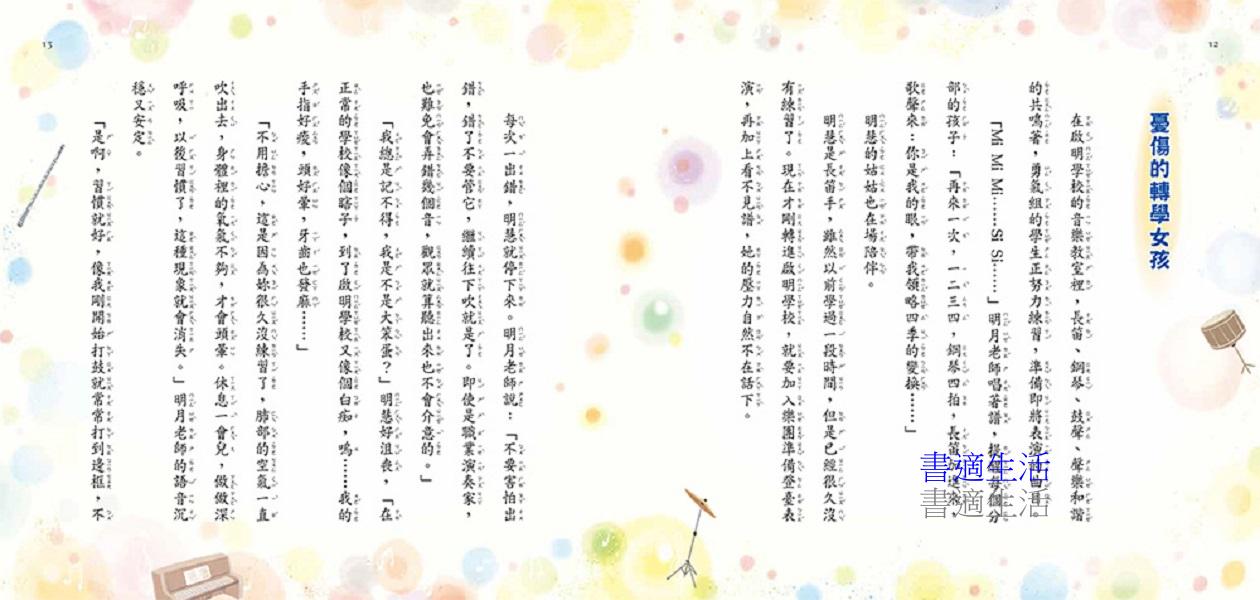 12
憂傷的轉學女孩
在啟明學校的音樂教室裡,長笛、鋼琴、鼓聲、聲樂和諧
的共鳴著,勇氣組的學生正努力練習,準備即將表演的曲目。
「Mi Mi Mi……Si Si……」明月老師唱著譜,提醒每個分
部的孩子:「再來一次,一二三四,鋼琴四拍,長笛加進來,
歌聲來:你是我的眼,帶我領略四季的變換………」
明慧的姑姑也在場陪伴。
明慧是長笛手,雖然以前學過一段時間,但是已經很久沒
有練習了。現在才剛轉進啟明學校,就要加入樂團準備登臺表
演,再加上看不見譜,她的壓力自然不在話下。
每次一出錯,明慧就停下來。明月老師說:「不要害怕出
錯,錯了不要管它,繼續往下吹就是了。即使是職業演奏家,
也難免會弄錯幾個音,觀眾就算聽出來也不會介意的。」
「我總是記不得,我是不是大笨蛋?」明慧好沮喪,「在
正常的學校像個瞎子,到了啟明學校又像個白痴,嗚……我的
手指好痠,頭好暈,牙齒也發麻……」
「不用擔心,這是因為妳很久沒練習了,肺部的空氣一直
吹出去,身體裡的氧氣不夠,才會頭暈。休息一會兒,做做深
呼吸,以後習慣了,這種現象就會消失。」明月老師的語音沉
穩又安定。
「是啊,習慣就好,像我剛開始打鼓就常常打到邊框,不
13
書適生活
書適生活